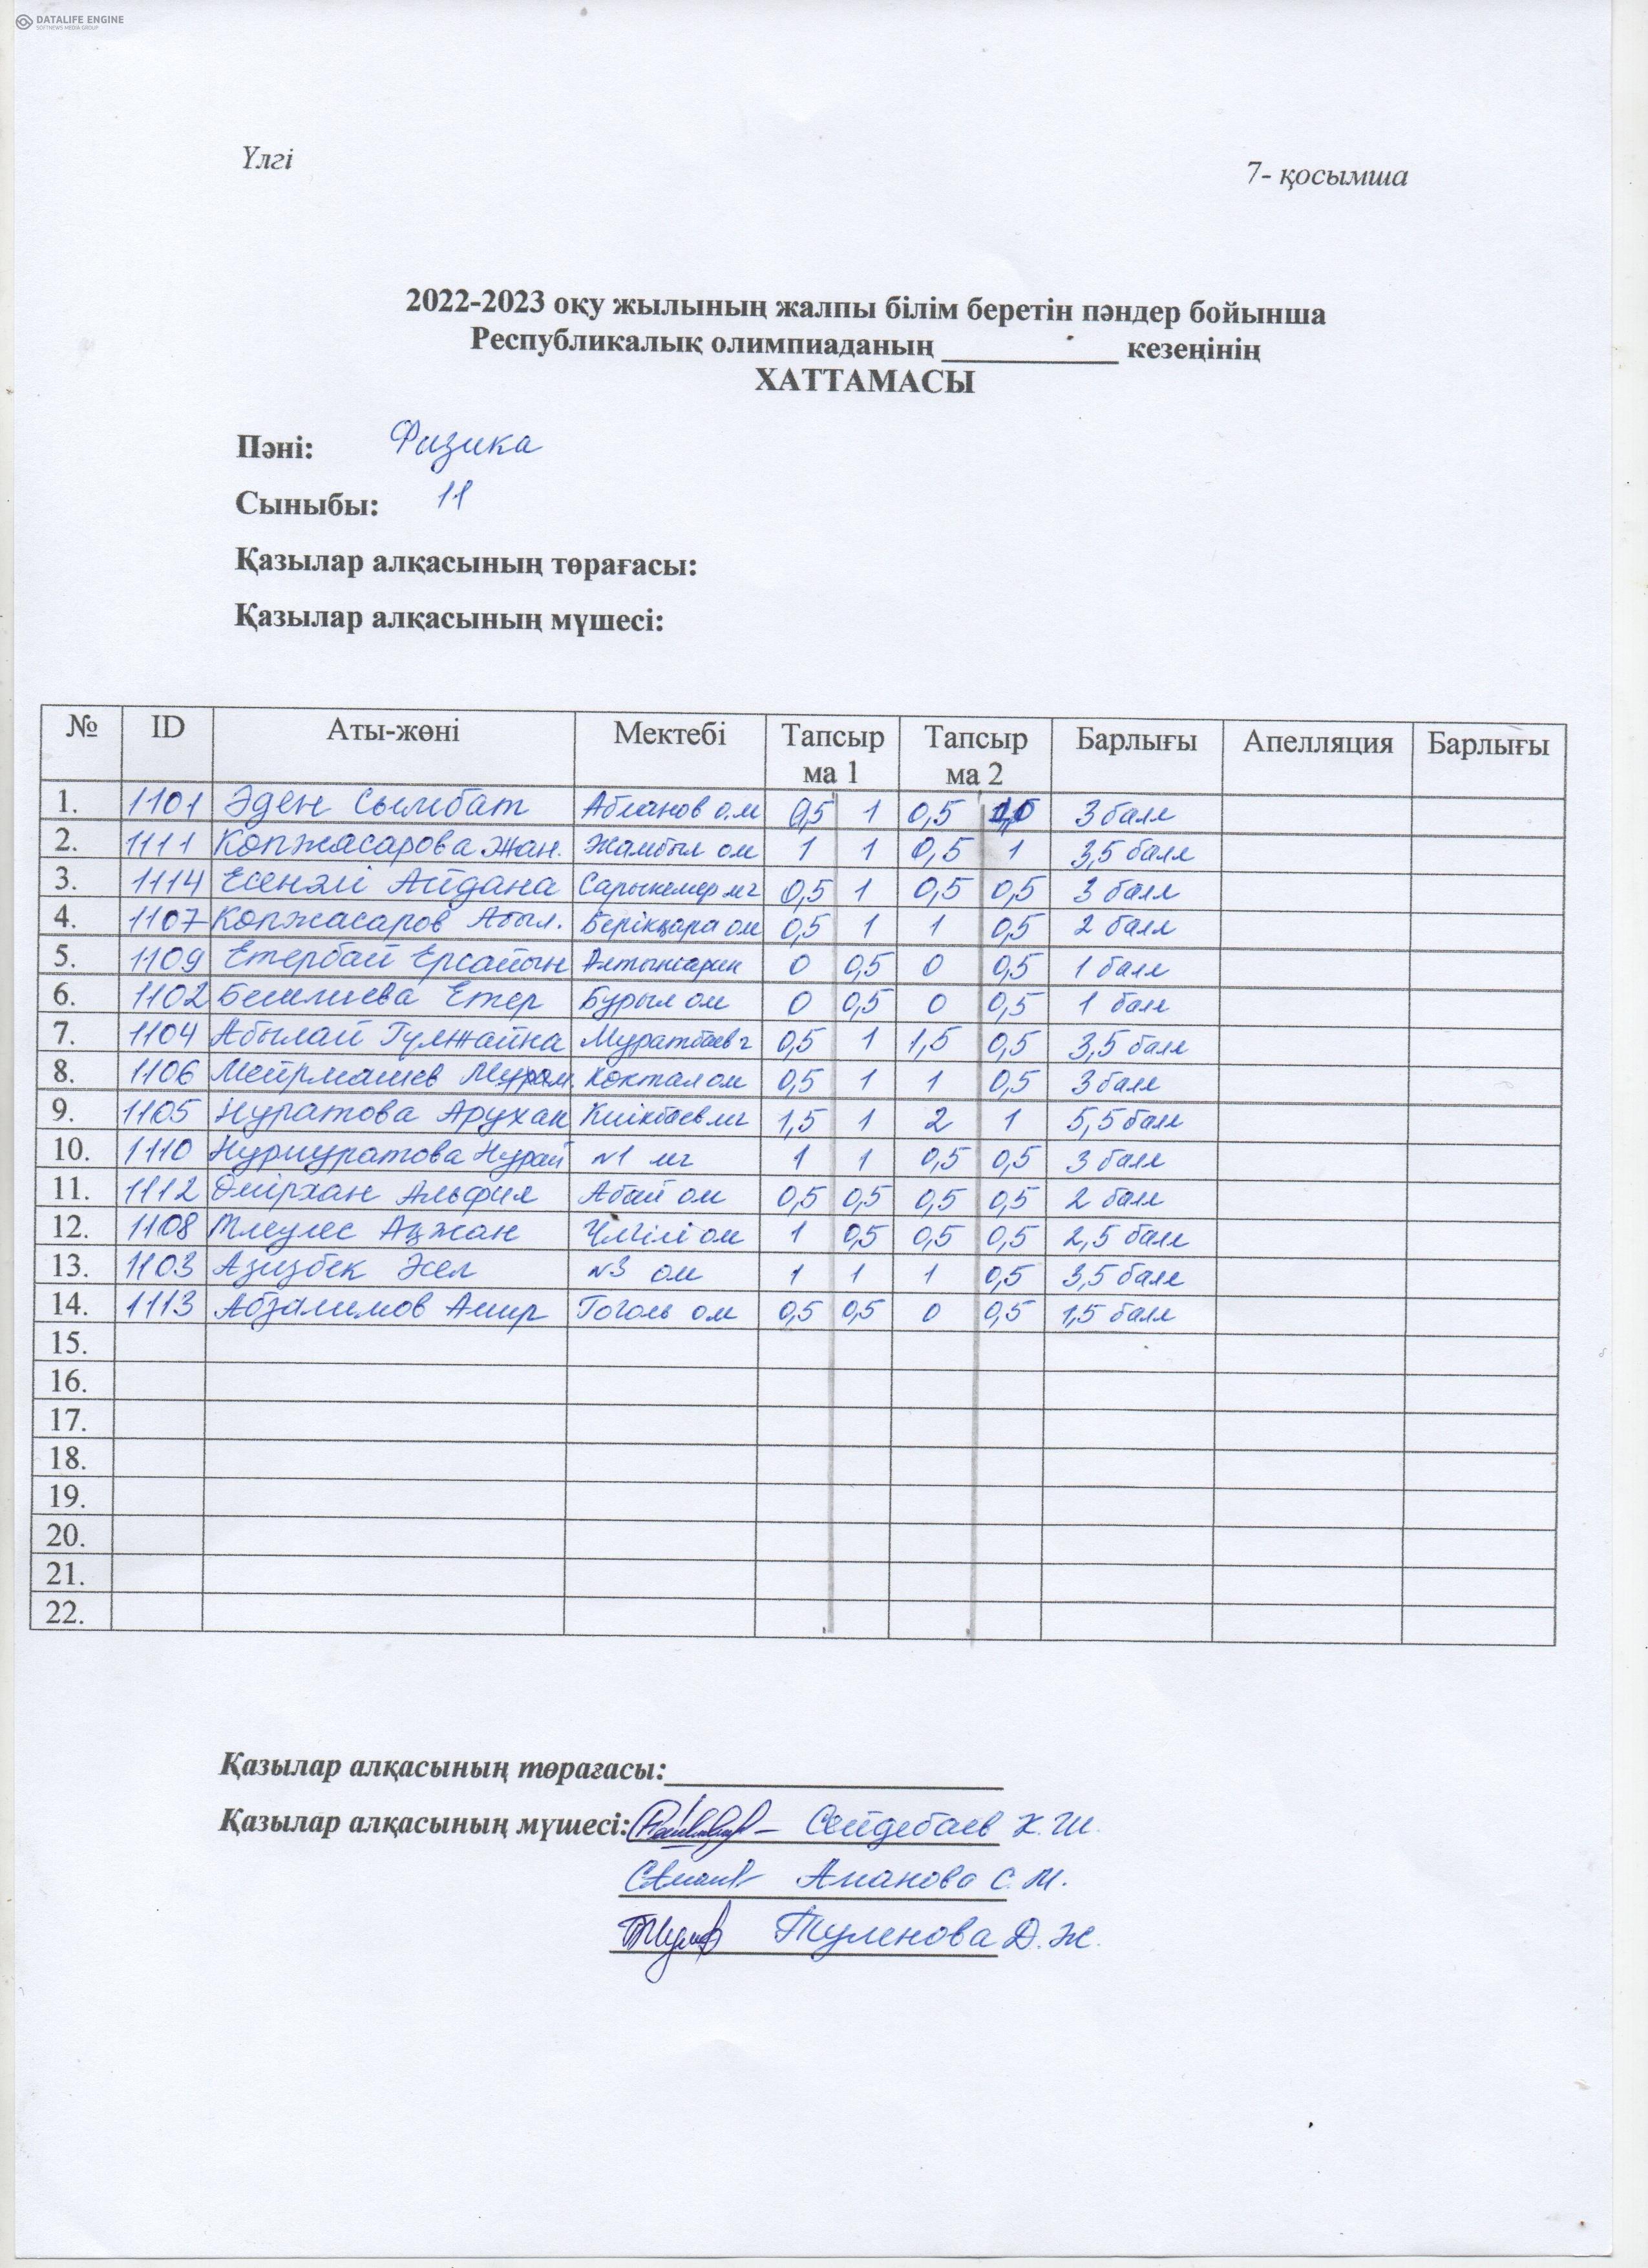 DATALIFE ENGINE
SOFTNEWS MEDIA GROUP
Үлгі
7- қосымша
2022-2023 оқу жылының жалпы білім беретін пәндер бойынша
Республикалық олимпиаданың ____________ кезеңінің
ХАТТАМАСЫ
Пәні: Физика
Сыныбы: 11
Қазылар алқасының төрағасы:
Қазылар алқасының мүшесі:
№ ID Аты-жөні Мектебі Тапсыр ма 1 Тапсыр ма 2 Барлығы Апелляция Барлығы
1. 1101 Әден Сымбат о.м 0,5 1 0,5 3 балл
2. 1111 Көпжасарова Жан. Жамбыл ом 1 1 0,5 1 3,5 балл
3. 1114 Есенәлі Айдана Сарыкемер мг 0,5 1 0,5 0,5 3 балл
4. 1107 Көпжасаров Абыл. Берікқара ом 0,5 1 1 0,5 2 балл
5. 1109 Етербай Ерсайын Алтынсарин 0 0,5 0 0,5 1 балл
6. 1102 Етер Бурыл ом 0 0,5 0 0,5 1 балл
7. 1104 Абылай Гүлжайна Муратбаев г 0,5 1 1,5 0,5 3,5 балл
8. 1106 Мейрманов Көктал ом 0,5 1 1 0,5 3 балл
9. 1105 Нуратова Арухан Киікбаев мг 1,5 1 2 1 5,5 балл
10. 1110 Нурмуратова Нурай №1 мг 1 1 0,5 0,5 3 балл
11. 1112 Өмірхан Альфия Абай ом 0,5 0,5 0,5 0,5 2 балл
12. 1108 Тлеулес Ақжан Үлгілі ом 1 0,5 0,5 0,5 2,5 балл
13. 1103 Азизбек Әсел №3 ом 1 1 1 0,5 3,5 балл
14. 1113 Абзалимов Амир Гоголь ом 0,5 0,5 0 0,5 1,5 балл
15.
16.
17.
18.
19.
20.
21.
22.
Қазылар алқасының төрағасы:
Қазылар алқасының мүшесі: Сейдебаев Х.Ш.
Апанова С.М.
Туленова Д.Ж.